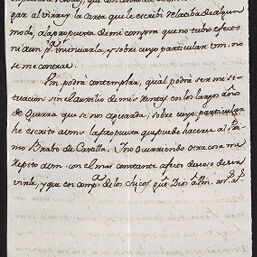 par al Virrey la Carta que le escribí relativa de algun
modo, à la propuesta de mi compra que no tubo efecto
ni aun pª. insinuarla, y sobre cuyo particular tmº. no
se me contexta.
Vm. podrá contemplar, qual podrá ser mi si
tuacion sin el auxilio de mis rentas en los largos años
de Guerra que se nos aguarda; sobre cuyo particular
he escrito àtmº. la propuesta que puede hacerse al
Brabo de Cavalla. Y no ocurriendo otra cosa me
repito àtmº. con el mas constante afecto deseoso de ser
virle, y que en compª. de los chicos gue. Dios à Vm. ms. as.